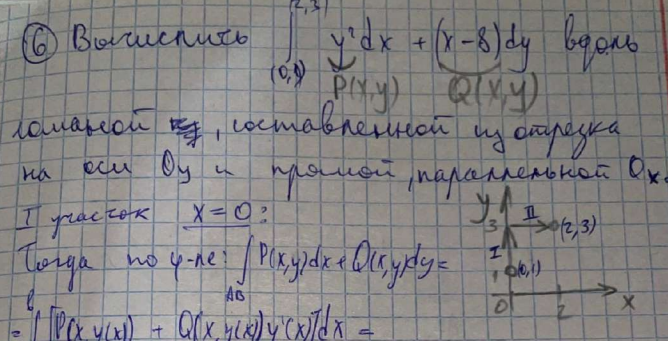 (2,3)
⑥ Вычислить ∫ y²dx + (x-8)dy вдоль
(0,1) P(x,y) Q(x,y)
ломаной, составленной из отрезка
на оси Oy и прямой, параллельной Ox.
I участок x=0:
Тогда по ф-ле: ∫P(x,y)dx+Q(x,y)dy=
AB
= ∫[P(x,y(x)) + Q(x,y(x))y'(x)]dx =
y
3 II (2,3)
I
1 (0,1)
0 2 x